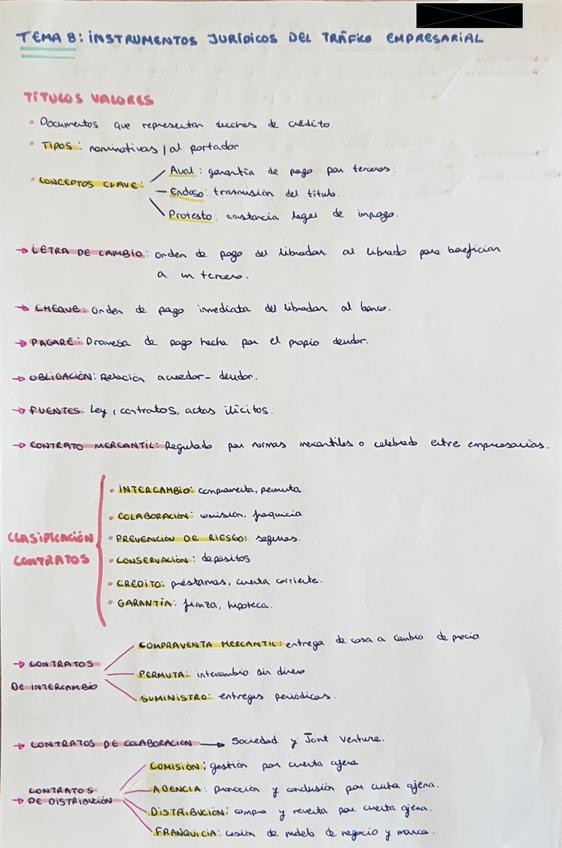 TEMA 8: INSTRUMENTOS JURÍDICOS DEL TRÁFICO EMPRESARIAL
TÍTULOS VALORES
• Documentos que representan derechos de crédito
• TIPOS: nominativos / al portador
• CONCEPTOS CLAVE:
Aval: garantía de pago por terceros.
Endoso: transmisión del título.
Protesto: constancia legal de impago.
→ LETRA DE CAMBIO: orden de pago del librador al librado para beneficiar
a un tercero.
→ CHEQUE: Orden de pago inmediata del librador al banco.
→ PAGARÉ: Promesa de pago hecha por el propio deudor.
→ OBLIGACIÓN: Relación acreedor-deudor.
→ FUENTES: Ley, contratos, actos ilícitos.
→ CONTRATO MERCANTIL: Regulado por normas mercantiles o celebrado entre empresarios.
CLASIFICACIÓN
CONTRATOS
• INTERCAMBIO: compraventa, permuta
• COLABORACIÓN: comisión, franquicia
• PREVENCIÓN DE RIESGO: seguros.
• CONSERVACIÓN: depósitos
• CREDITO: préstamos, cuenta corriente.
• GARANTÍA: fianza, hipoteca.
→ CONTRATOS
DE INTERCAMBIO
COMPRAVENTA MERCANTIL: entrega de cosa a cambio de precio
PERMUTA: intercambio sin dinero
SUMINISTRO: entregas periódicas.
→ CONTRATOS DE COLABORACIÓN → Sociedad y Joint Venture.
CONTRATOS
→ DE DISTRIBUCIÓN
COMISIÓN: gestión por cuenta ajena
AGENCIA: promoción y conclusión por cuenta ajena.
DISTRIBUCIÓN: compra y reventa por cuenta ajena.
FRANQUICIA: cesión de modelo de negocio y marca.